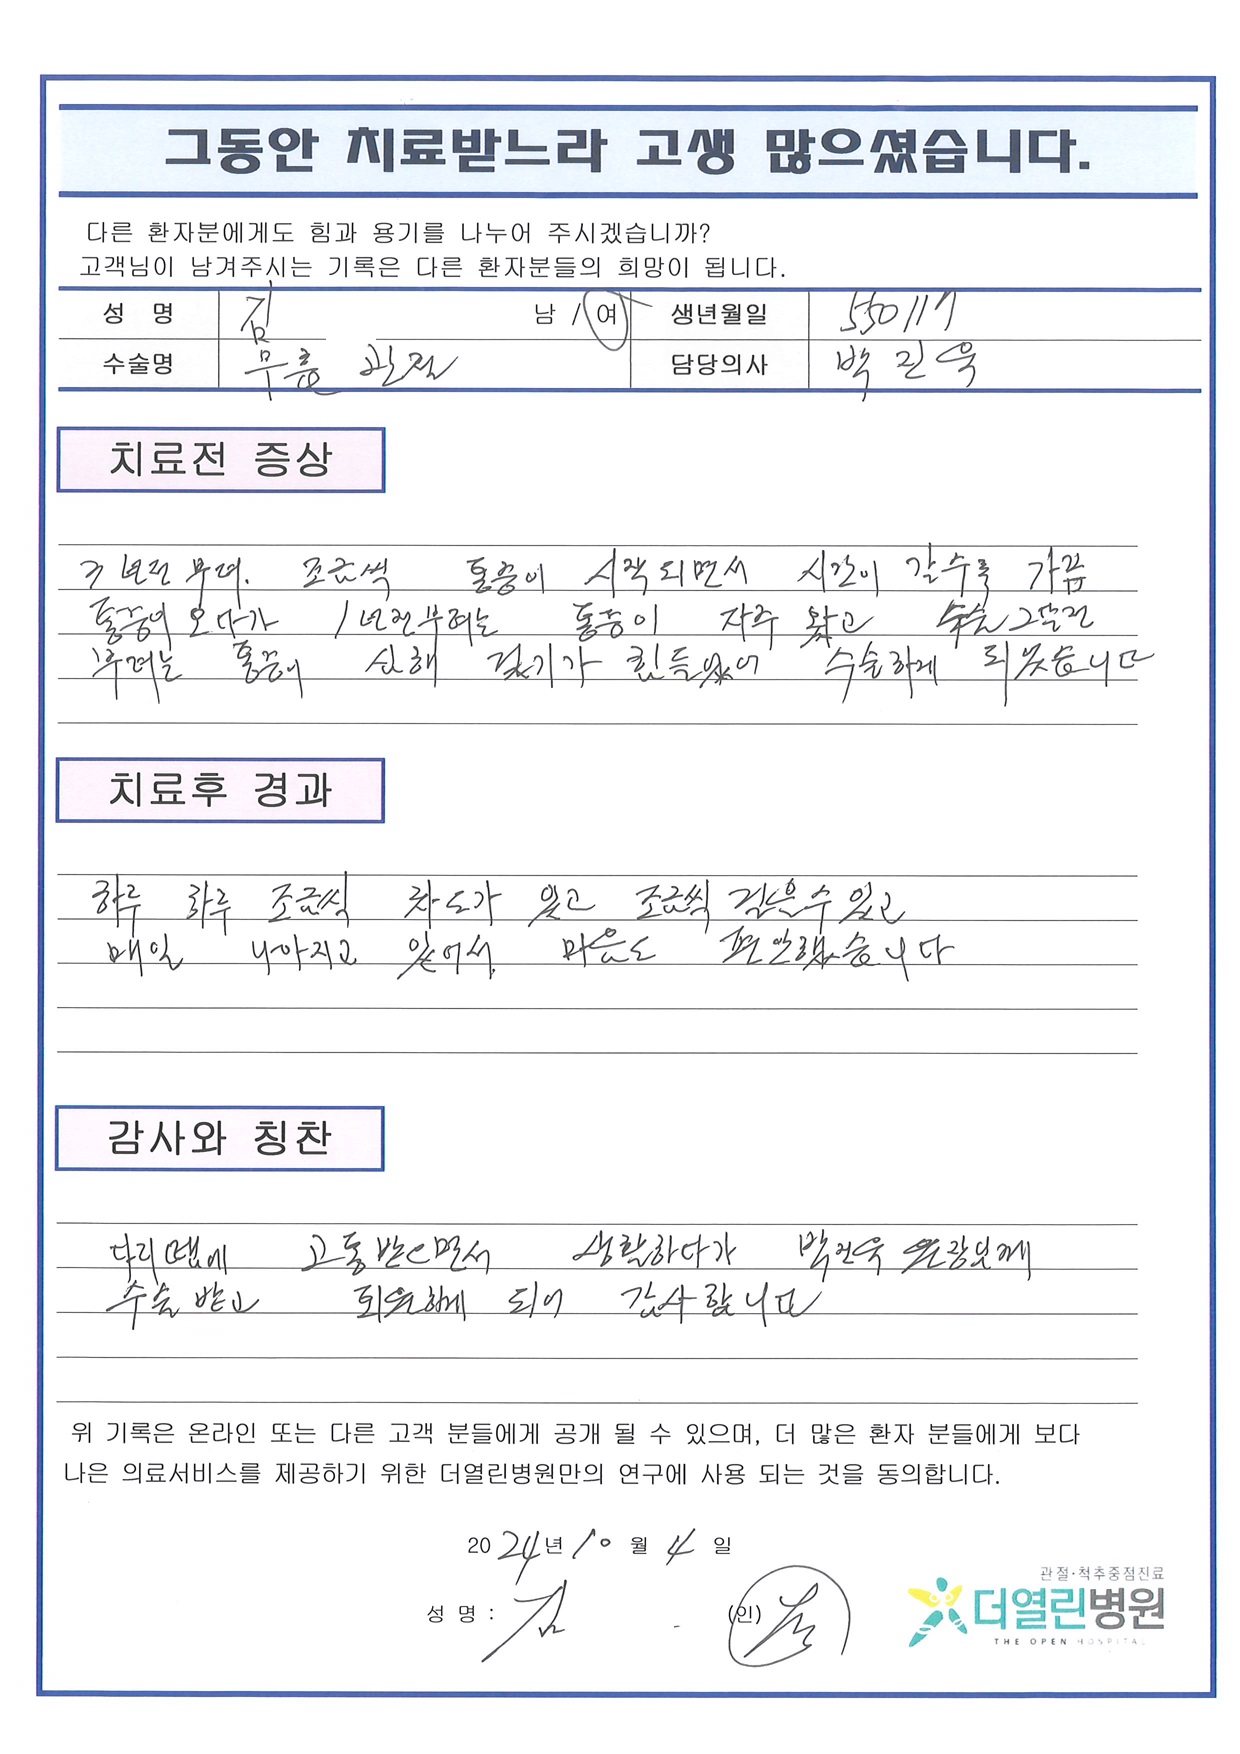 그동안 치료받느라 고생 많으셨습니다.
다른 환자분에게도 힘과 용기를 나누어 주시겠습니까?
고객님이 남겨주시는 기록은 다른 환자분들의 희망이 됩니다.
성 명 김 남 / 여 생년월일 550117
수술명 무릎 관절 담당의사 박진욱
치료전 증상
3년전 부터. 조금씩 통증이 시작되면서 시간이 갈수록 가끔
통증이 오다가 1년전부터는 통증이 자주 왔고 수술 그달전
부터는 통증이 심해 걷기가 힘들었어 수술하게 되었습니다
치료후 경과
하루 하루 조금씩 차도가 있고 조금씩 걸을수 있고
매일 나아지고 있어서 마음도 편안했습니다
감사와 칭찬
다리땜에 고통받으면서 생활하다가 박진욱 원장님께
수술받고 퇴원하게 되어 감사합니다
위 기록은 온라인 또는 다른 고객 분들에게 공개 될 수 있으며, 더 많은 환자 분들에게 보다
나은 의료서비스를 제공하기 위한 더열린병원만의 연구에 사용 되는 것을 동의합니다.
2024년 10월 4일
성 명 : 김 (인)
관절·척추중점진료
더열린병원
THE OPEN HOSPITAL